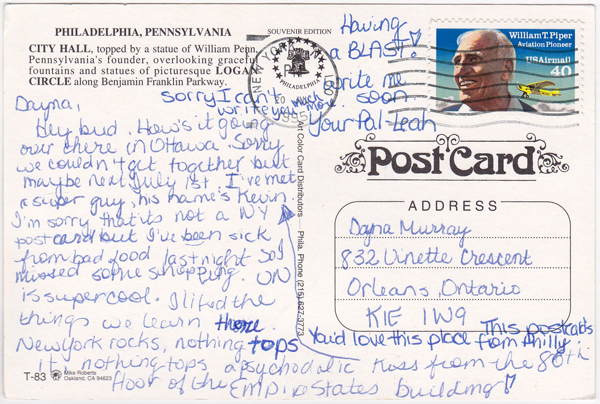 PHILADELPHIA, PENNSYLVANIA
SOUVENIR EDITION
CITY HALL, topped by a statue of William Penn,
Pennsylvania's founder, overlooking graceful
fountains and statues of picturesque LOGAN
CIRCLE along Benjamin Franklin Parkway.
Having
a BLAST!
write me
soon
Your Pal Leah
Sorry I can't
write you much
more
NEW YORK
PHILADELPHIA
1995
William T. Piper
Aviation Pioneer
USAirmail
40
Dayna,
Hey bud, How's it going
over there in Ottawa. Sorry
we couldn't get together but
maybe next July 1st. I've met
a super guy, his name's Kevin
I'm sorry that its not a NY
postcard but I've been sick
from bad food last night so I
missed some shopping. UN
is supercool. I liked the
things we learn there.
New york rocks, nothing tops
it, nothing tops a psychodalic kiss from the 86th
floor of the EMPIRE STATES building!
Art Color Card Distributors
Phila. Phone (215) 627-3773
Post Card
ADDRESS
Dayna Murray
832 Vinette Crescent
Orleans, Ontario
K1E 1W9
This postcards
from Philly
You'd love this place
T-83
Mike Roberts
Oakland, CA 94623